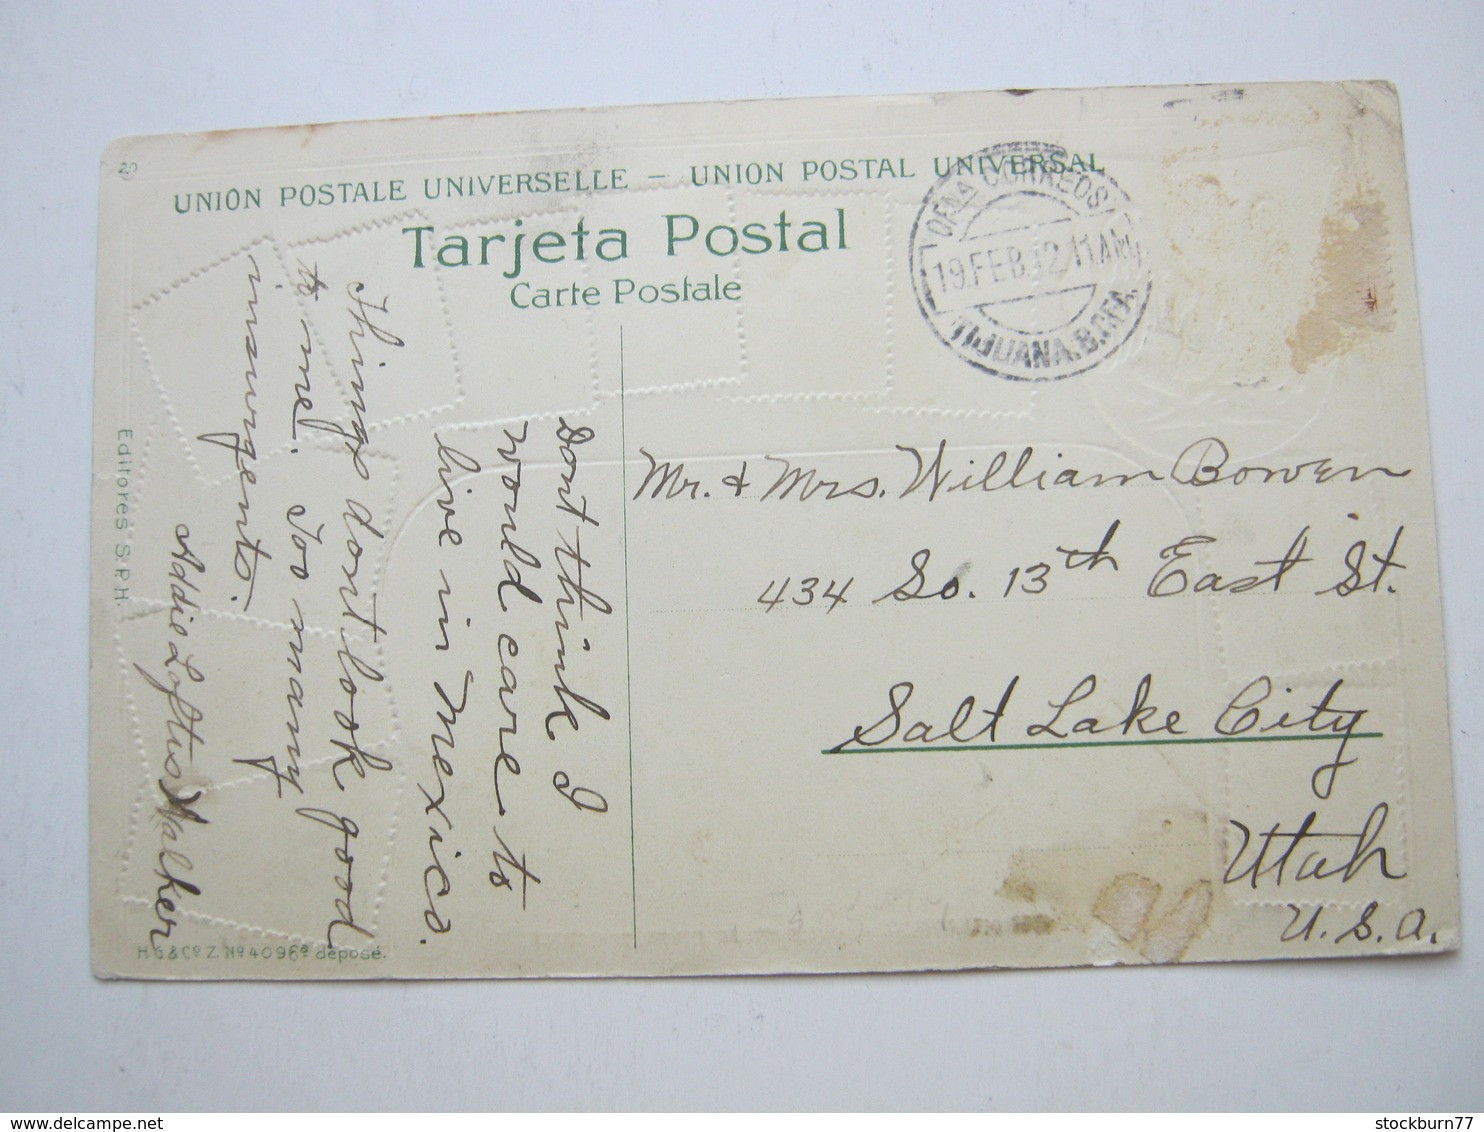 29
UNION POSTALE UNIVERSELLE – UNION POSTAL UNIVERSAL
Tarjeta Postal
Carte Postale
OFNA CORREOS
19.FEB.12.11AM
TIJUANA.B.CFA.
Dont think I
would care to
live in Mexico.
Things dont look good
to me. Too many
insurgento.
Addie Loftus Walker
Mr. & Mrs. William Bowen
434 So. 13th East St.
Salt Lake City
Utah
U.S.A.
Editores S.P.H.
H.G&Co Z. No 4096a déposé.
stockburn77